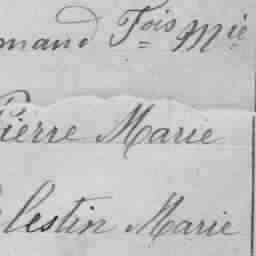 mand Fois Mie
Pierre Marie
lestin Marie